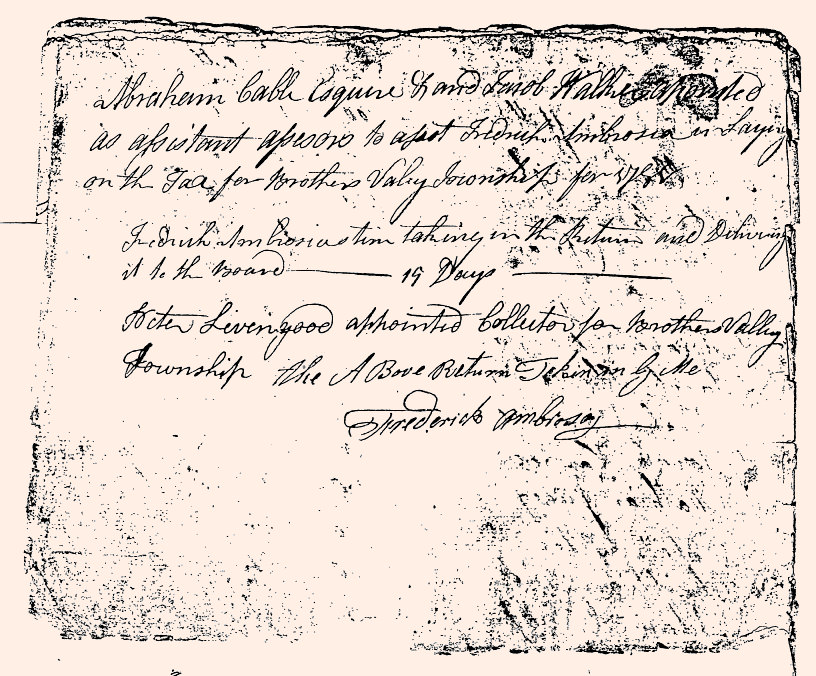 Abraham Cable Esquire & and Jacob Walker apointed
as assistant assesors to assist Fredrick Ambrosia in Laying
on the Tax for Brothers Valey Township for
Fredrick Ambrosias time takeing in the Return and Delivring
it to the Board 19 Days
Peter Livengood appointed Collector for Brothers Valley
Township the A Bove Return Teken in By Me
Frederick Ambrosey